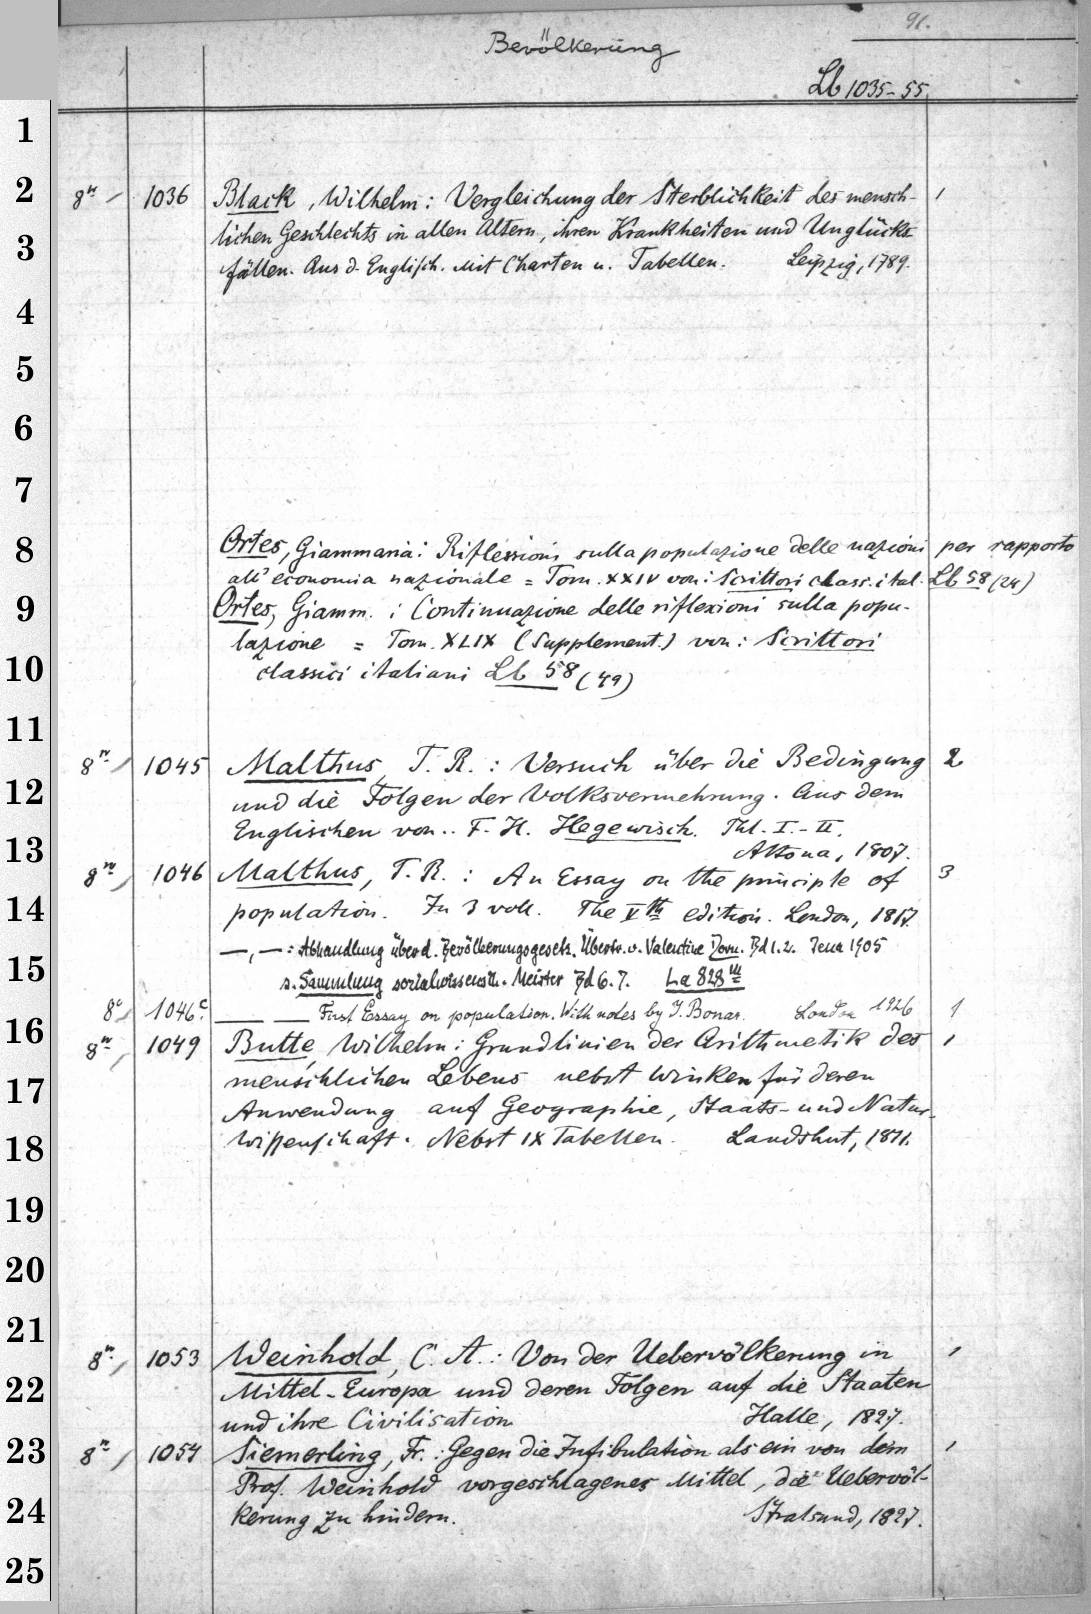 91.
Bevölkerung
Lb 1035-55.
1
2 8° / 1036 Black, Wilhelm: Vergleichung der Sterblichkeit des mensch- 1
3 lichen Geschlechts in allen Altern, ihren Krankheiten und Unglücks
fällen. Aus d. Englisch. Mit Charten u. Tabellen. Leipzig, 1789.
4
5
6
7
8 Ortes, Giammaria: Riflessioni sulla popolazione delle nazioni per rapporto
all' economia nazionale = Tom. XXIV von: Scrittori class. ital. Lb 58 (24)
9 Ortes, Giamm.: Continuazione delle riflessioni sulla popu-
lazione = Tom. XLIX (Supplement.) von: Scrittori
10 classici italiani Lb 58 (49)
11
8° / 1045 Malthus, T. R.: Versuch über die Bedingung 2
12 und die Folgen der Volksvermehrung. Aus dem
Englischen von.. F. H. Hegewisch. Thl. I.-II.
13 Altona, 1807.
8° / 1046 Malthus, T. R.: An Essay on the principle of 3
14 population. In 3 voll. The Vth edition. London, 1817.
—, —: Abhandlung über d. Bevölkerungsgesetz. Übers. v. Valentine Dorn. Bd 1.2. Jena 1905
15 s. Sammlung sozialwissensch. Meister Bd 6. 7. La 828 m
8° / 1046c. — — First Essay on population. With notes by J. Bonar. London 1926 1
16 8° / 1049 Butte, Wilhelm: Grundlinien der Arithmetik des 1
17 menschlichen Lebens nebst Winken für deren
Anwendung auf Geographie, Staats- und Natur-
18 wissenschaft. Nebst IX Tabellen. Landshut, 1811.
19
20
21
8° / 1053 Weinhold, C. A.: Von der Uebervölkerung in 1
22 Mittel-Europa und deren Folgen auf die Staaten
und ihre Civilisation Halle, 1827.
23 8° / 1054 Siemerling, Fr.: Gegen die Infibulation als ein von dem 1
Prof. Weinhold vorgeschlagenes Mittel, die Uebervöl-
24 kerung zu hindern. Stralsund, 1827.
25